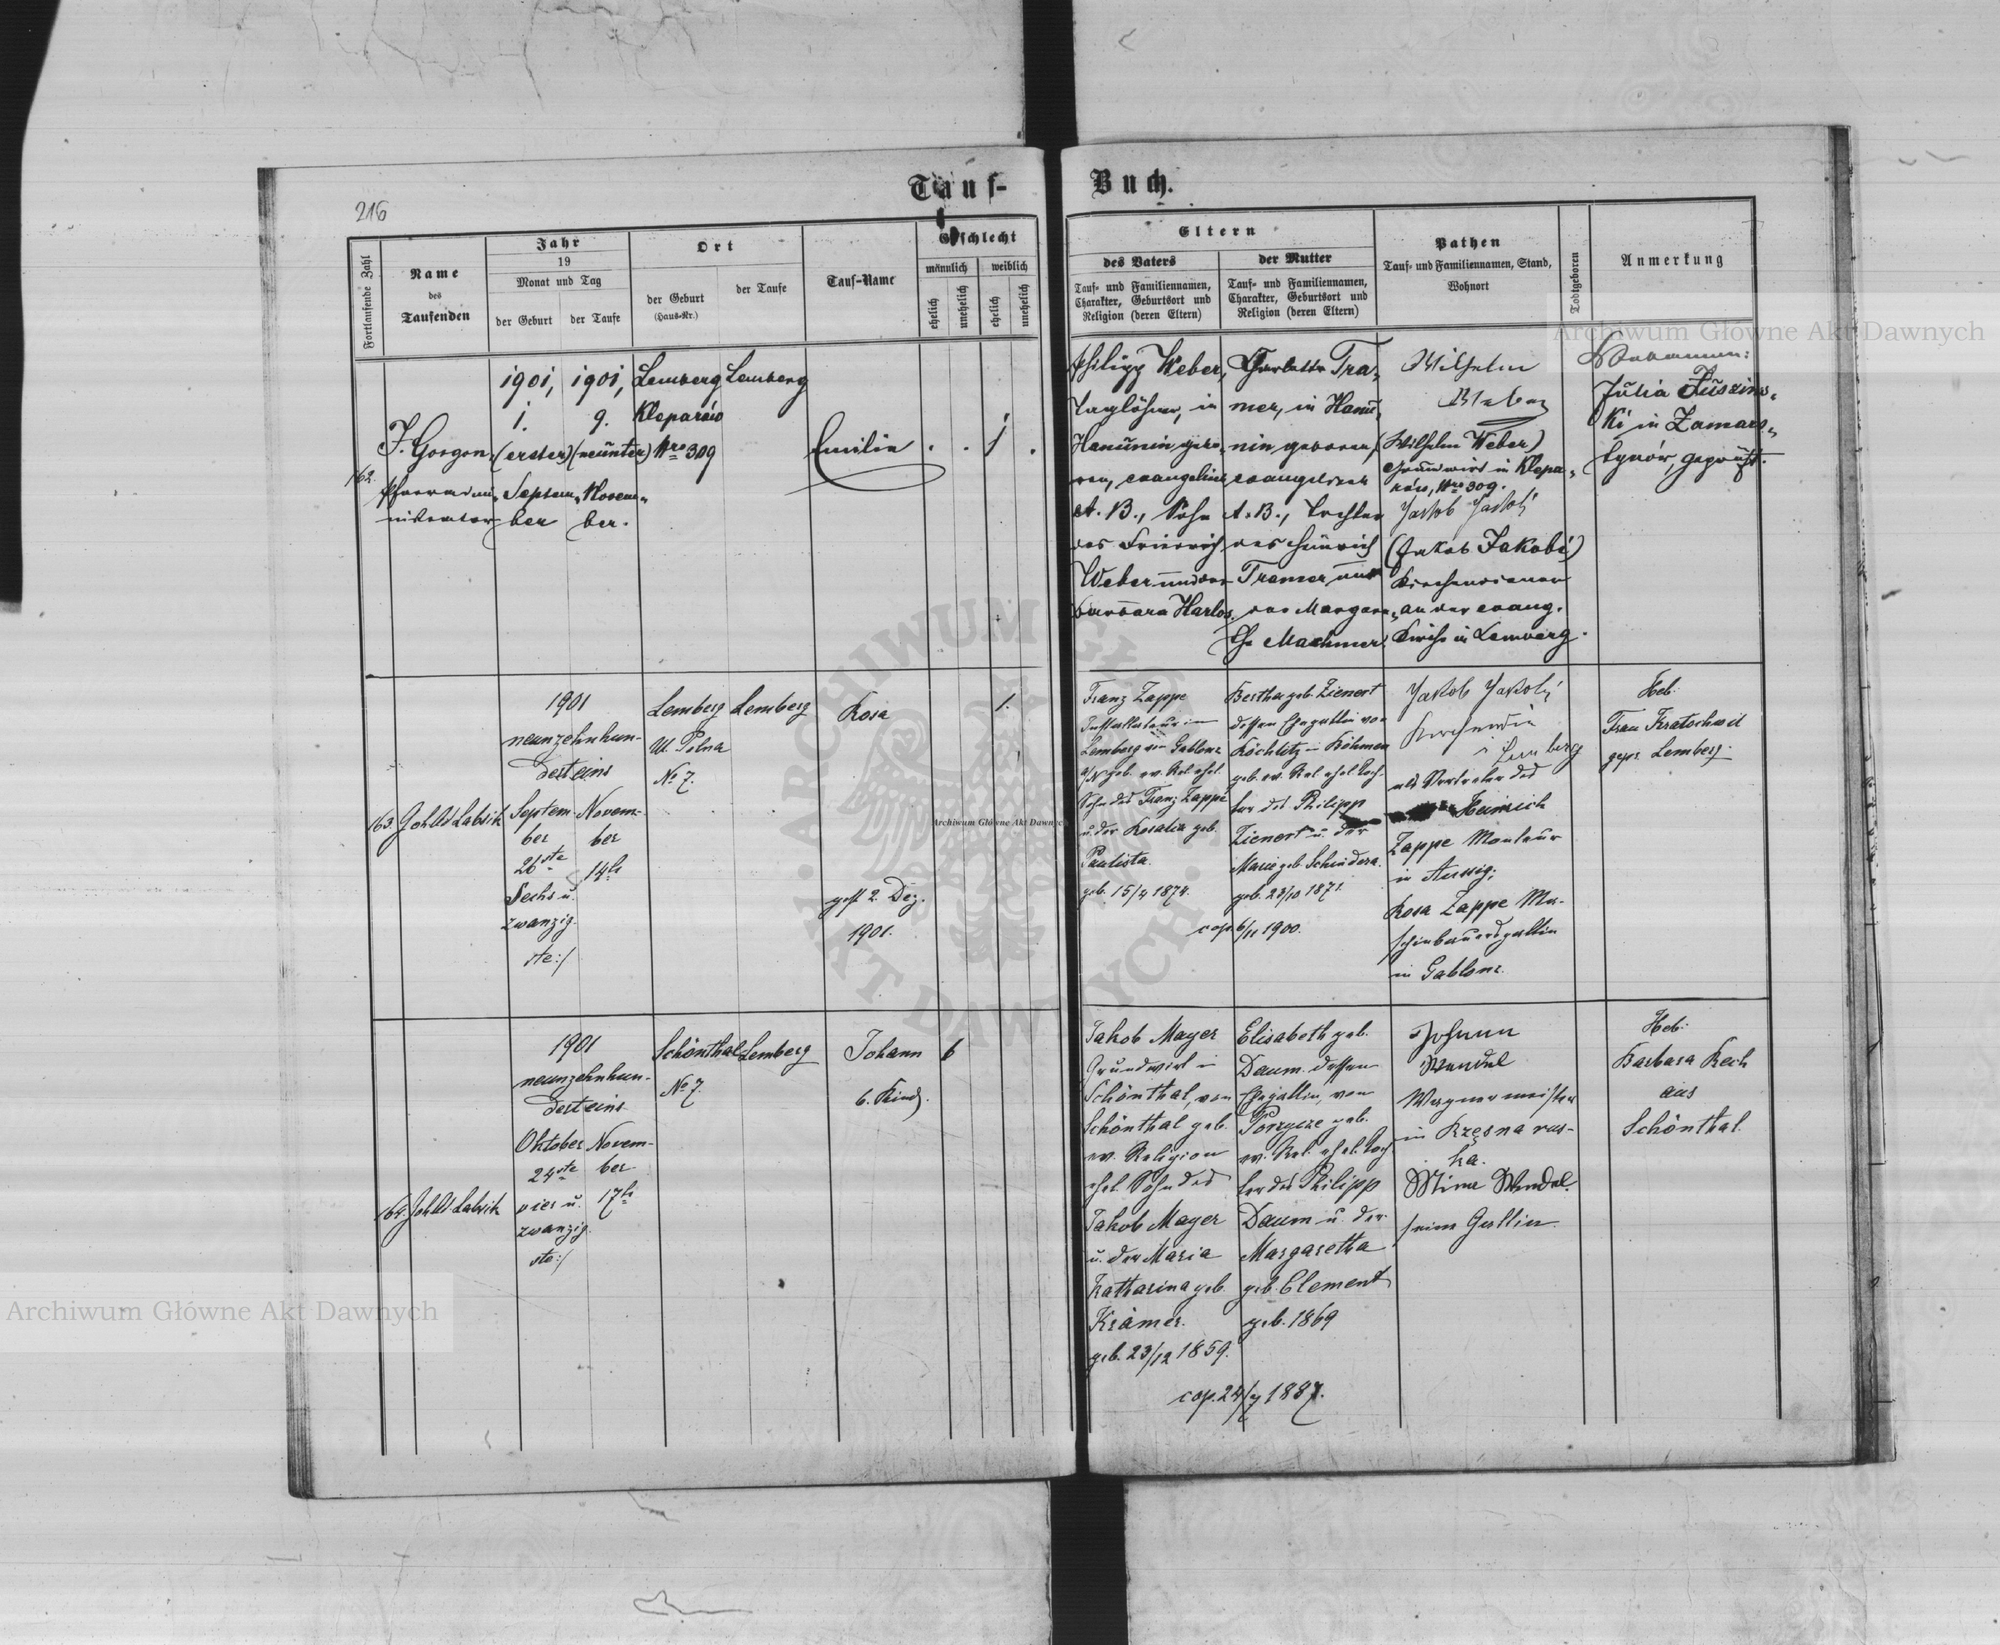 216
Tauf-
Buch.
Fortlaufende Zahl
Name
des
Taufenden
Jahr
19
Monat und Tag
der Geburt
der Taufe
Ort
der Geburt
(Haus-Nr.)
der Taufe
Tauf-Name
Geschlecht
männlich
weiblich
ehelich
unehelich
ehelich
unehelich
Eltern
des Vaters
Tauf- und Familiennamen,
Charakter, Geburtsort und
Religion (deren Eltern)
der Mutter
Tauf- und Familiennamen,
Charakter, Geburtsort und
Religion (deren Eltern)
Pathen
Tauf- und Familiennamen, Stand,
Wohnort
Todtgeboren
Anmerkung
162.
J. Gorgon,
Pfarradmi„
nistrator
1901,
1.
(erster)
Septem„
ber
1901,
9.
(neunter)
Novem„
ber.
Lemberg
Kleparów
Nro 309
Lemberg
Emilie
. . 1 .
Philipp Weber,
Taglöhner, in
Hanunin gebo„
ren, evangelisch
A. B., Sohn
des Friedrich
Weber und der
Barbara Harlos.
Charlotte Tra„
mer, in Hanu„
nin geboren,
evangelisch
A. B., Tochter
des Heinrich
Tramer und
der Margare„
the Machmer.
Wilhelm
Weber
(Wilhelm Weber)
Grundwirt in Klepa„
rów, Nro 309.
Jakob Jakobi
(Jakob Jakobi)
Kirchendiener
an der evang.
Kirche in Lemberg.
Hebamme:
Julia Tuszins„
ki in Zamars„
tynów, geprüft.
163.
Joh Ud Labsik
1901
neunzehnhun-
dert eins
Septem-
ber
26ste
Sechs u.
zwanzig-
ste:/
Novem-
ber
14te
Lemberg
Ul. Polna
No 7.
Lemberg
Rosa
gest 2. Dez.
1901.
1.
Franz Zappe
Installateur in
Lemberg von Gablonz
a/N geb. ev. Rel. ehel.
Sohn des Franz Zappe
u. der Rosalia geb.
Paulista.
geb. 15/4 1874.
Bertha geb. Zienert
dessen Ehegattin von
Köchlitz in Böhmen
geb. ev. Rel. ehel. Toch-
ter des Philipp
Zienert u. der
Marie geb. Schindera.
geb. 23/10 1871.
cop. 6/11 1900.
Jakob Jakobi
Kirchendie
i Lemberg
als Vertreter des
Heinrich
Zappe Monteur
in Aussig;
Rosa Zappe Ma-
schinbauersgattin
in Gablonz.
Heb:
Frau Kratochwil
gepr. Lemberg.
164.
Joh Ud Labsik
1901
neunzehnhun-
dert eins
Oktober
24ste
vier u.
zwanzig-
ste:/
Novem-
ber
17te
Schönthal
No 7.
Lemberg
Johann
6. Kind.
6
Jakob Mayer
Grundwirt in
Schönthal, von
Schönthal geb.
ev. Religion
ehel. Sohn des
Jakob Mayer
u. der Maria
Katharina geb.
Krämer.
geb. 23/12 1859.
Elisabeth geb.
Daum. dessen
Ehegattin, von
Porzycze geb.
ev. Rel. ehel. Toch-
ter des Philipp
Daum u. der
Margaretha
geb. Clement
geb. 1869
cop. 24/7 1887.
Johann
Wendel
Wagnermeister
in Rzęsna rus-
ka.
Mina Wendel.
seine Gattin.
Heb:
Barbara Rech
aus
Schönthal.
Archiwum Główne Akt Dawnych
Archiwum Główne Akt Dawnych
Archiwum Główne Akt Dawnych